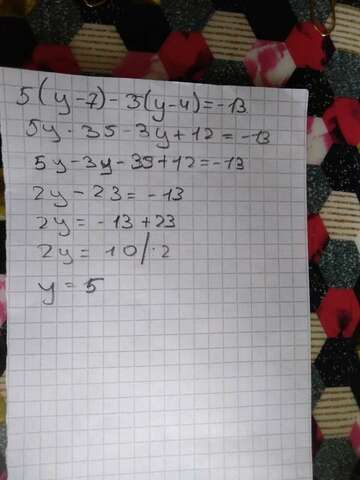 5(y-7)-3(y-4)=-13
5y-35-3y+12=-13
5y-3y-35+12=-13
2y-23=-13
2y=-13+23
2y=10/:2
y=5